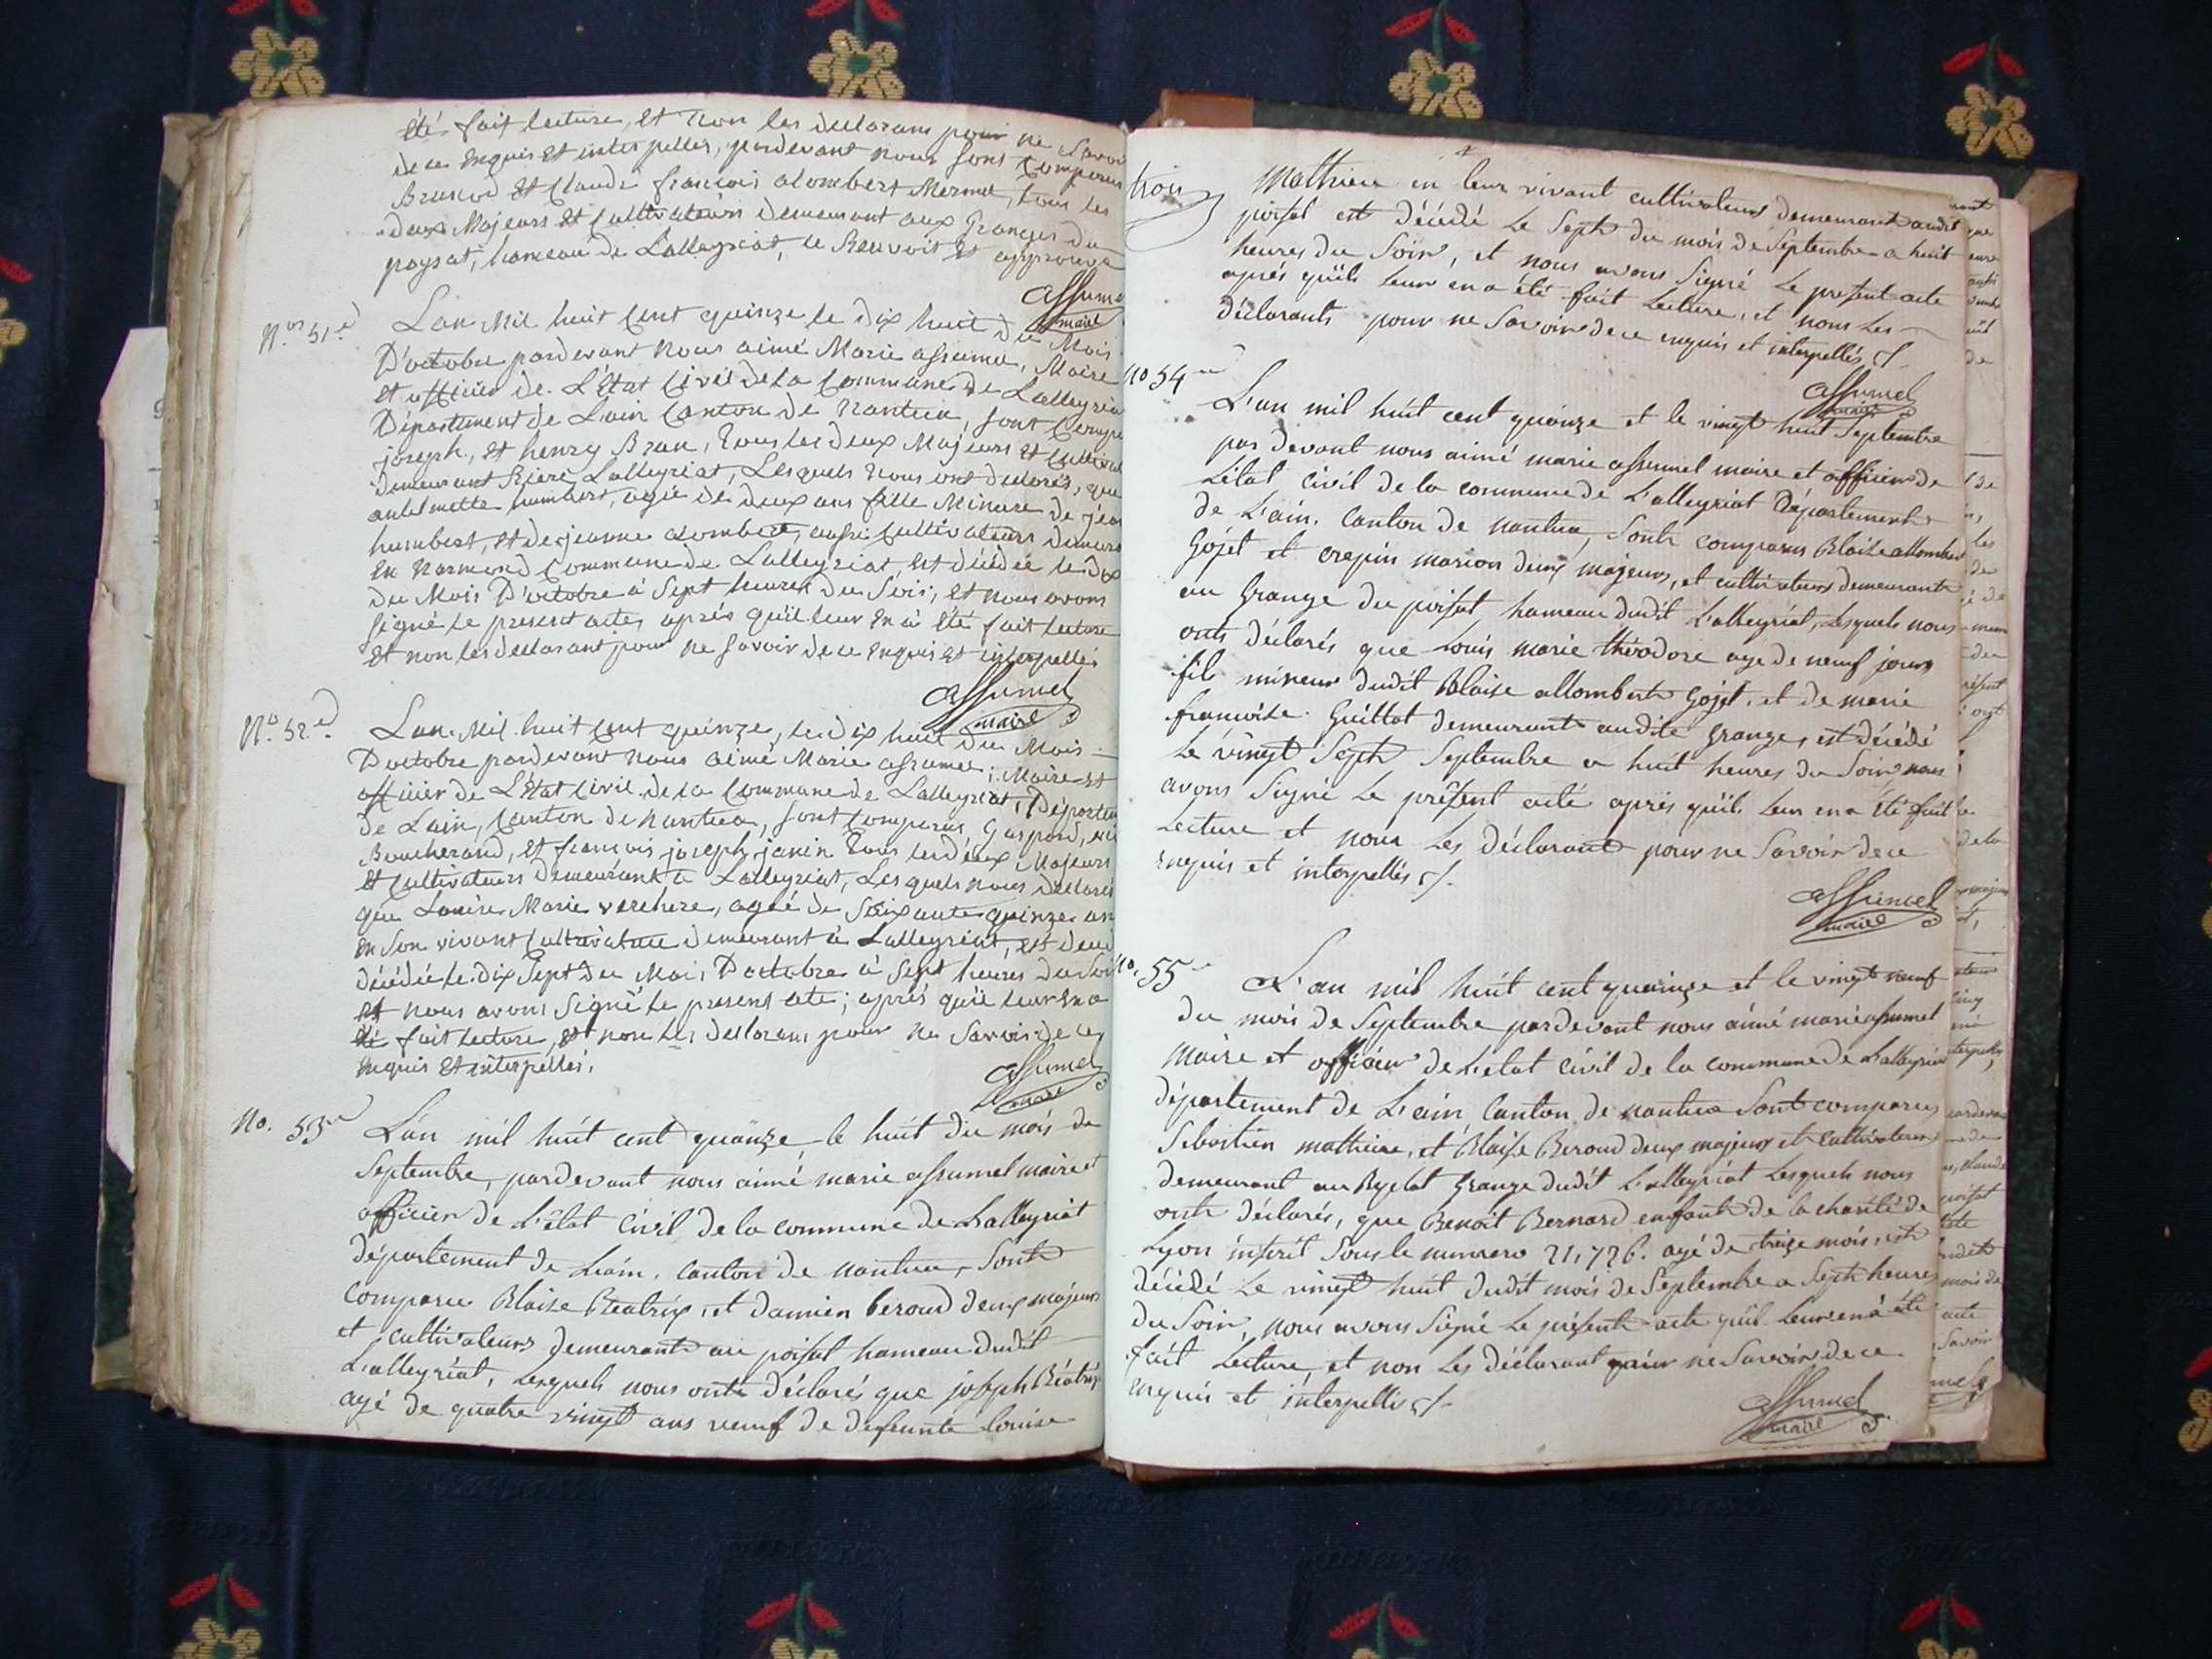 été fait lecture, et non les declarans pour ne Savoir
de ce enquis et interpellés, pardevant nous sont Comparus
Brunod et Claude françois alombert Mermet, tous les
deux Majeurs et Cultivateurs demeurant aux Granges du
poysat, hameau de Lalleyriat, le Renvois est approuvé
assumel
maire
N.os 51.e
L'an Mil huit Cent quinze le dix huit du Mois
D'octobre pardevant nous aimé Marie assumel, Maire
et officier de L'état Civil de La Commune de Lalleyriat
Département de L'ain Canton de nantua, sont Compa
joseph, et henry Brun, tous les deux Majeurs et Cultivat
demeurant Lalleyriat, Lesquels nous ont declarés, que
antelmette humbert, agée de deux ans fille Mineure de jean
humbert, et de jeanne alombert, aussi Cultivateurs demeura
en Marmond Commune de Lalleyriat, est décédée le dix
du Mois D'octobre à Sept heures du Soir, et nous avons
signé le present acte, aprés qu'il leur en à été fait lecture
et non les declarant pour ne savoir de ce enquis et interpellés
assumel
maire
N.o 52.e
L'an Mil huit Cent quinze, le dix huit du Mois
D'octobre pardevant nous aimé Marie assumel, Maire et
officier de L'état Civil de la Commune de Lalleyriat, Departem
de L'ain, Canton de Nantua, sont Comparus, Gaspard,
Boucherand, et francois joseph janin tous les deux Majeurs
et Cultivateurs demeurant à Lalleyriat, Lesquels nous declarés
que Louise Marie verchere, agée de Soixante quinze an
en Son vivant Cultivatrice demeurant à Lalleyriat, est
décédée le dix Sept du Mois D'octobre à Sept heures du Soir
et nous avons Signé le present acte; aprés qu'il leur en a
été fait Lecture, et non Les declarans pour ne Savoir de ce
enquis et interpellés.
assumel
maire
No. 53e
L'an mil huit cent quinze, le huit du mois de
Septembre, pardevant nous aimé marie assumel maire et
officier de L'état Civil de la commune de Lalleyriat
département de L'ain, Canton de nantua, Sont
Comparu Blaise Béatrix, et damien beroud deux majeurs
et Cultivateurs demeurant au poisat hameau dudit
L'alleyriat, Lesquels nous onts déclarés que joseph Béatrix
agé de quatre vingt ans veuf de défeunte Louise
trois
Mathieu en leur vivant cultivateurs demeurant audit
poisat est décédé Le Sept du mois de Septembre a huit
heures du Soir, et nous avons Signé Le présent acte
aprés qu'il Leur en a été fait Lecture, et nons Les
déclarants pour ne Savoir de ce enquis et interpellés ./.
assumel
maire
No 54e
L'an mil huit cent quinze et le vingt huit Septembre
par devant nous aimé marie assumel maire et officier de
L'état Civil de la commune de L'alleyriat Département
de L'ain, Canton de nantua, Sont comparus Blaise allombert
Gojet et crepin marion deux majeurs, et cultivateurs demeurants
au Grange du poisat hameau dudit L'alleyriat, Lesquels nous
onts déclarés que Louis marie théodore age de neuf jours
fils mineur dudit Blaise allombert Gojet, et de marie
francoise Guillot demeurant audite Grange, est décédé
Le vingt Sept Septembre a huit heures du Soir, nous
avons Signé Le présent acte aprés qu'il Leur en a été fait
Lecture et nons Les Déclarant pour ne Savoir de ce
enquis et interpellés ./.
assumel
maire
No. 55e
L'an mil huit cent quainze et le vingt neuf
du mois de Septembre pardevant nous aimé marie assumel
Maire et officier de L'etat Civil de la commune de L'alleyriat
département de L'ain Canton de nantua Sont comparus
Sebastien mathieu, et Blaise Beroud deux majeurs et Cultivateurs
demeurant au Replat Grange dudit L'alleyriat Lesquels nous
onts déclarés, que Benoit Bernard enfant de la charité de
Lyon inscrit Sous le numero 21,726. agé de treize mois, est
décédé Le vingt huit dudit mois de Septembre a Sept heures
du Soir, nous avons Signé Le présent acte qu'il Leur en à été
fait Lecture, et non Les Déclarant pour ne Savoir de ce
enquis et interpellés ./.
assumel
maire